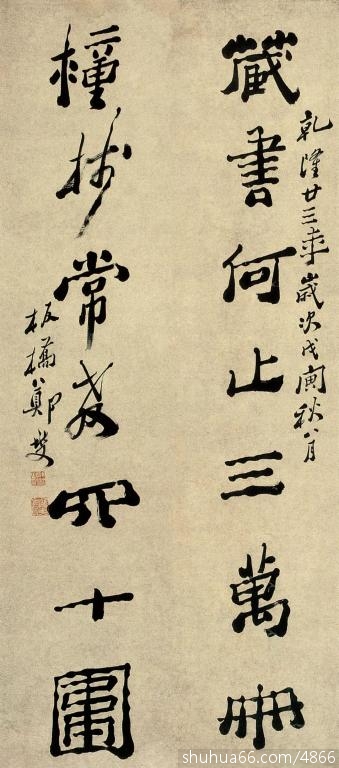 乾隆廿三年歲次戊寅秋八月
藏書何止三萬冊
種樹常教四十圍
板橋鄭燮
shuhua66.com/4866